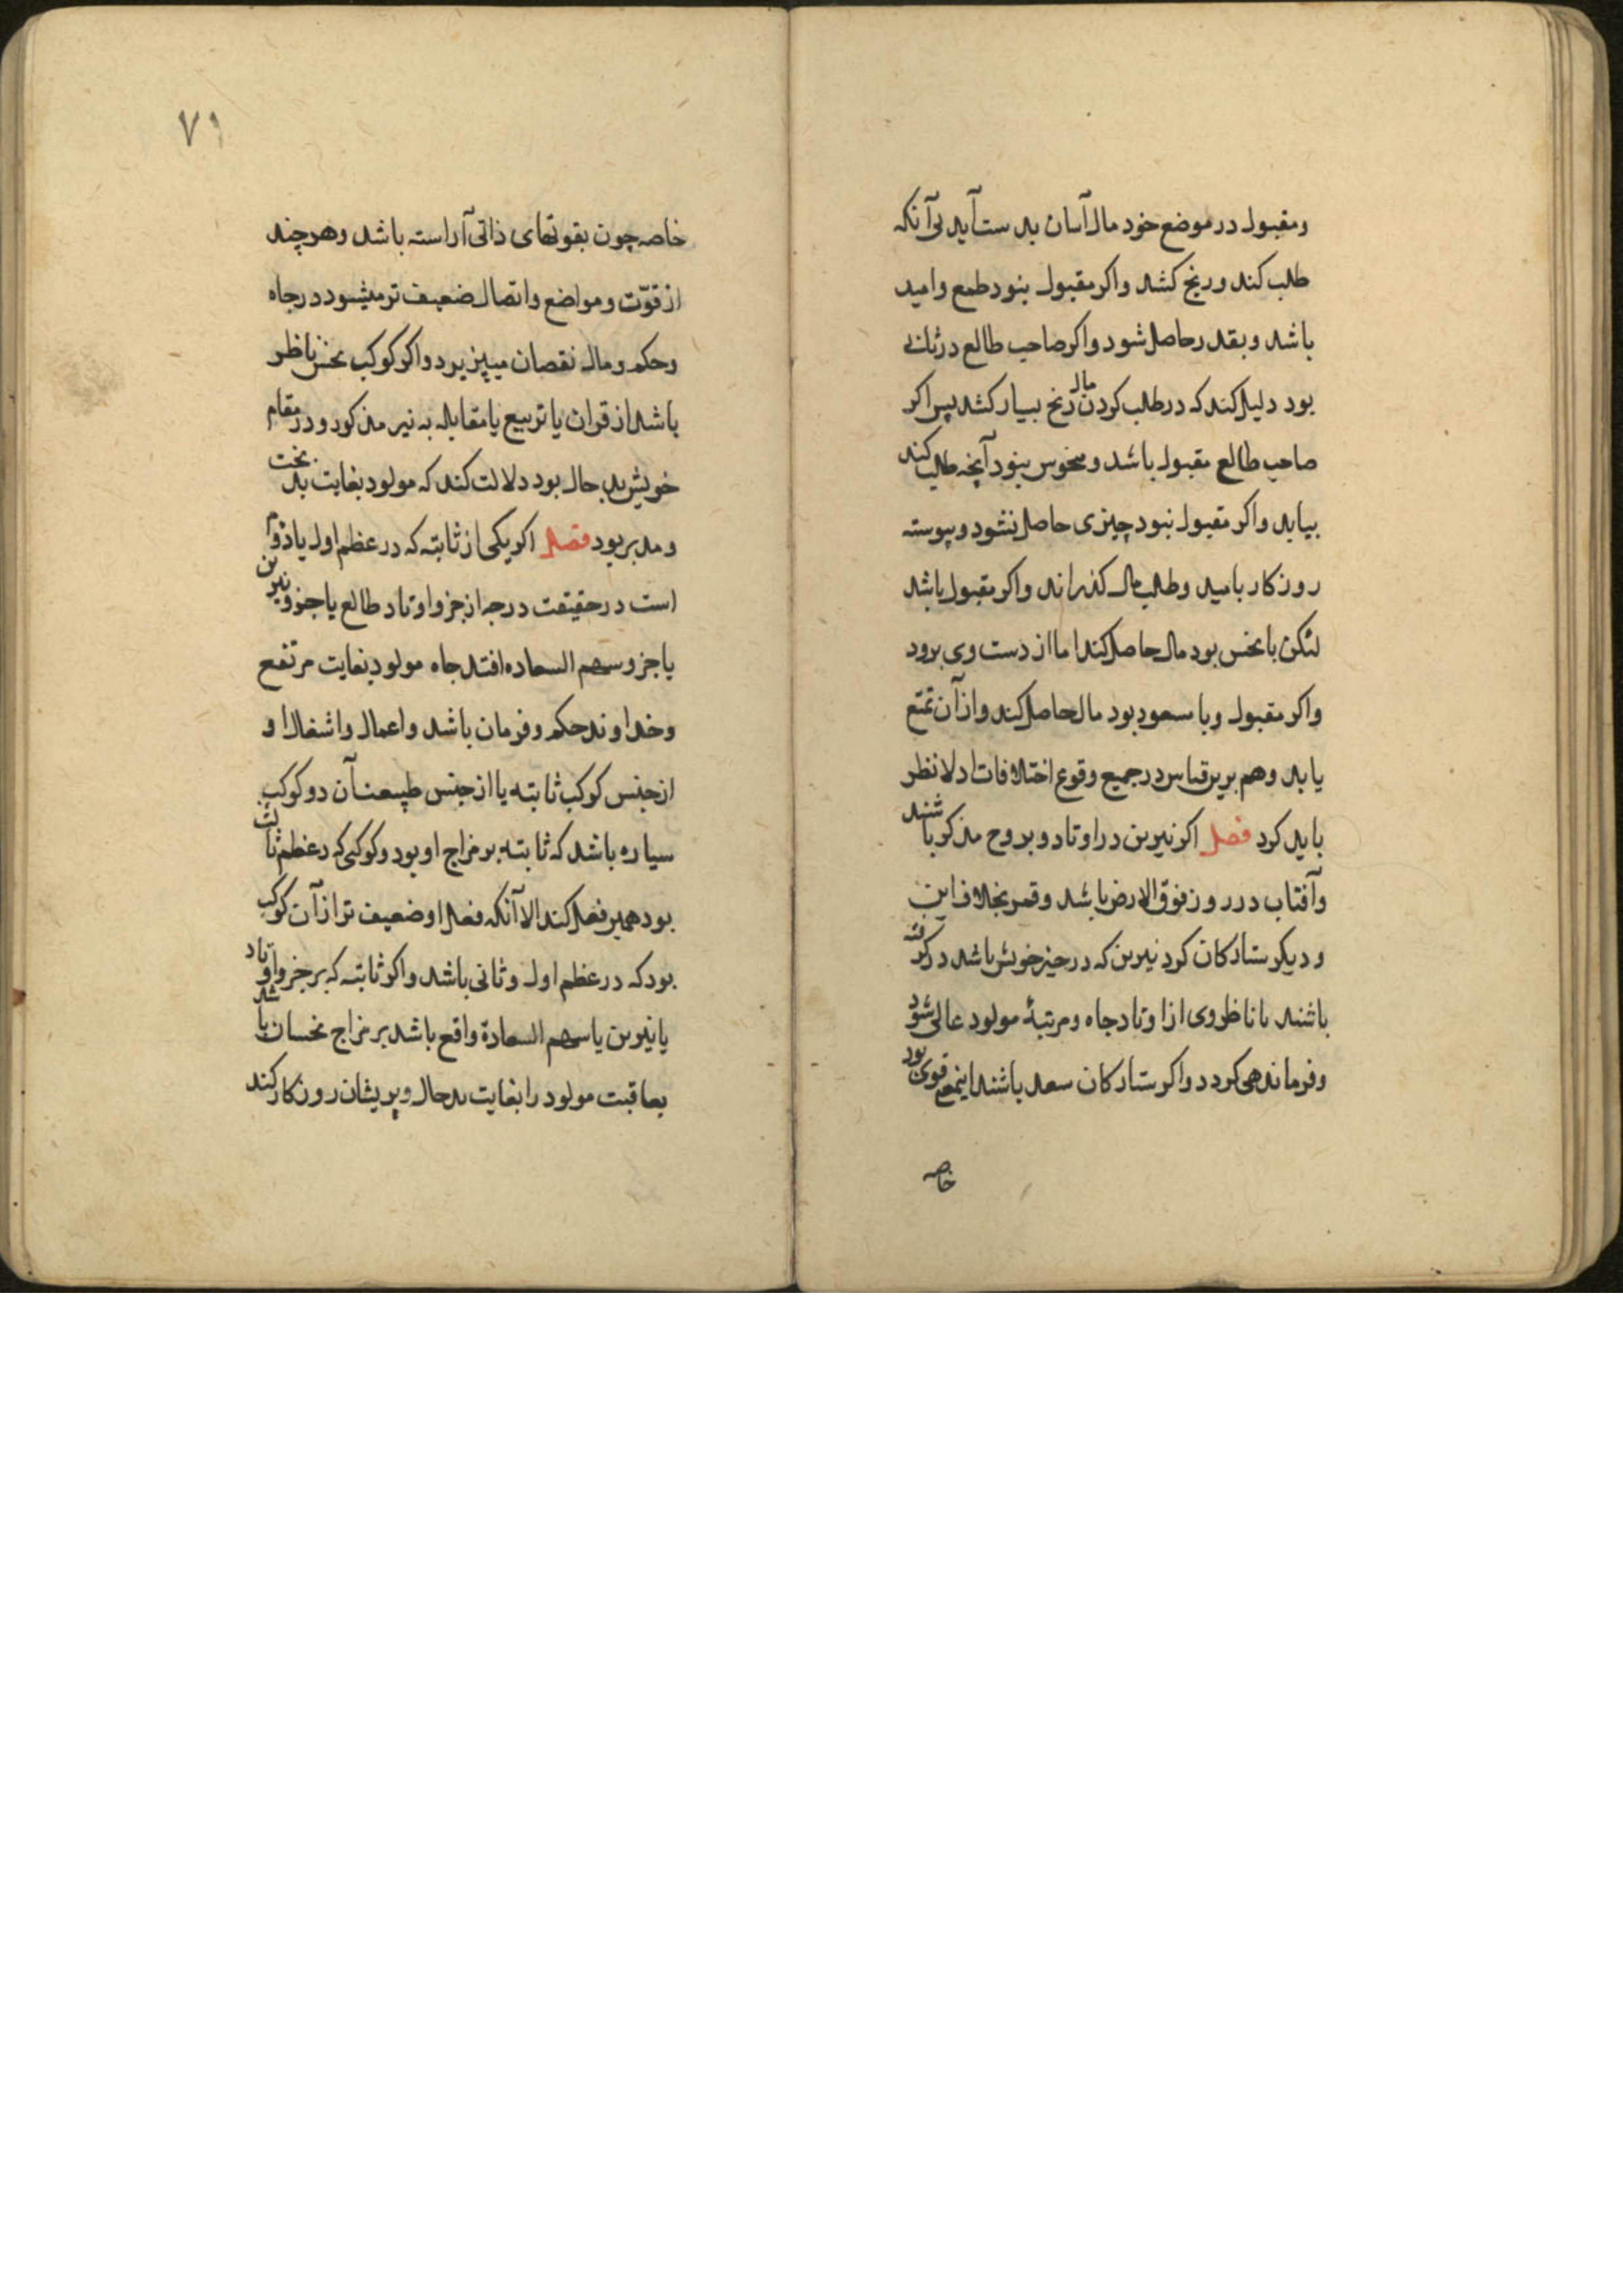 ومقبول در موضع خود مال آسان بدست آید بی آنکه
طلب کند و رنج کشد واکر مقبول نبود طمع وامید
باشد وبقدر حاصل شود واکر صاحب طالع در ثانی
بود دلیل کند که در طلب کردن مال رنج بسیار کشد پس اکر
صاحب طالع مقبول باشد ومنحوس نبود آنچه طلب کند
بیابد واکر مقبول نبود چیزی حاصل نشود وپیوسته
روزکار بامید وطلب مال کذراند واکر مقبول باشد
لیکن با نحس بود مال حاصل کند اما از دست وی برود
واکر مقبول وبا سعود بود مال حاصل کند واز آن تمتع
یابد وهم برین قیاس در جمیع وقوع اختلافات ادلا نظر
باید کرد فصل اکر نیرین در اوتاد وبروج مذکر باشند
وآفتاب در روز فوق الارض باشد وقمر بخلاف این
ودیکر ستارکان کرد نیرین که در حیز خویش باشد در کرفته
باشند یا ناظر وی از اوتاد جاه ومرتبۀ مولود عالی شود
وفرماندهی کردد واکر ستارکان سعد باشند اینمعنی قوی بود
خاصه
٧١
خاصه چون بقوتهای ذاتی آراسته باشد وهرچند
از قوّت ومواضع واتصال ضعیف تر میشود در جاه
وحکم ومال نقصان میپزیرد واکر کوکب نحس ناظر
باشد از قران یا تربیع یا مقابله به نیر مذکور ودر مقام
خویش بد حال بود دلالت کند که مولود بغایت بد بخت
ومدبر بود فصل اکر یکی از ثابته که در عظم اول یا دوم
است در حقیقت درجه از جزو اوتاد طالع یا جزو نیرین
یا جزو سهم السعاده افتد جاه مولود بغایت مرتفع
وخداوند حکم وفرمان باشد واعمال واشغال او
از جنس کوکب ثابته یا از جنس طبیعت آن دو کوکب
سیاره باشد که ثابته بر مزاج او بود وکوکبی که در عظم ثالث
بود همین فعل کند الا آنکه فعل او ضعیف تر از آن کوکب
بود که در عظم اول وثانی باشد واکر ثابته که بر جزو اوتاد
یا نیرین یا سهم السعادة واقع باشد بر مزاج نحسان باشد
بعاقبت مولود را بغایت بدحال وپریشان روزکار کند